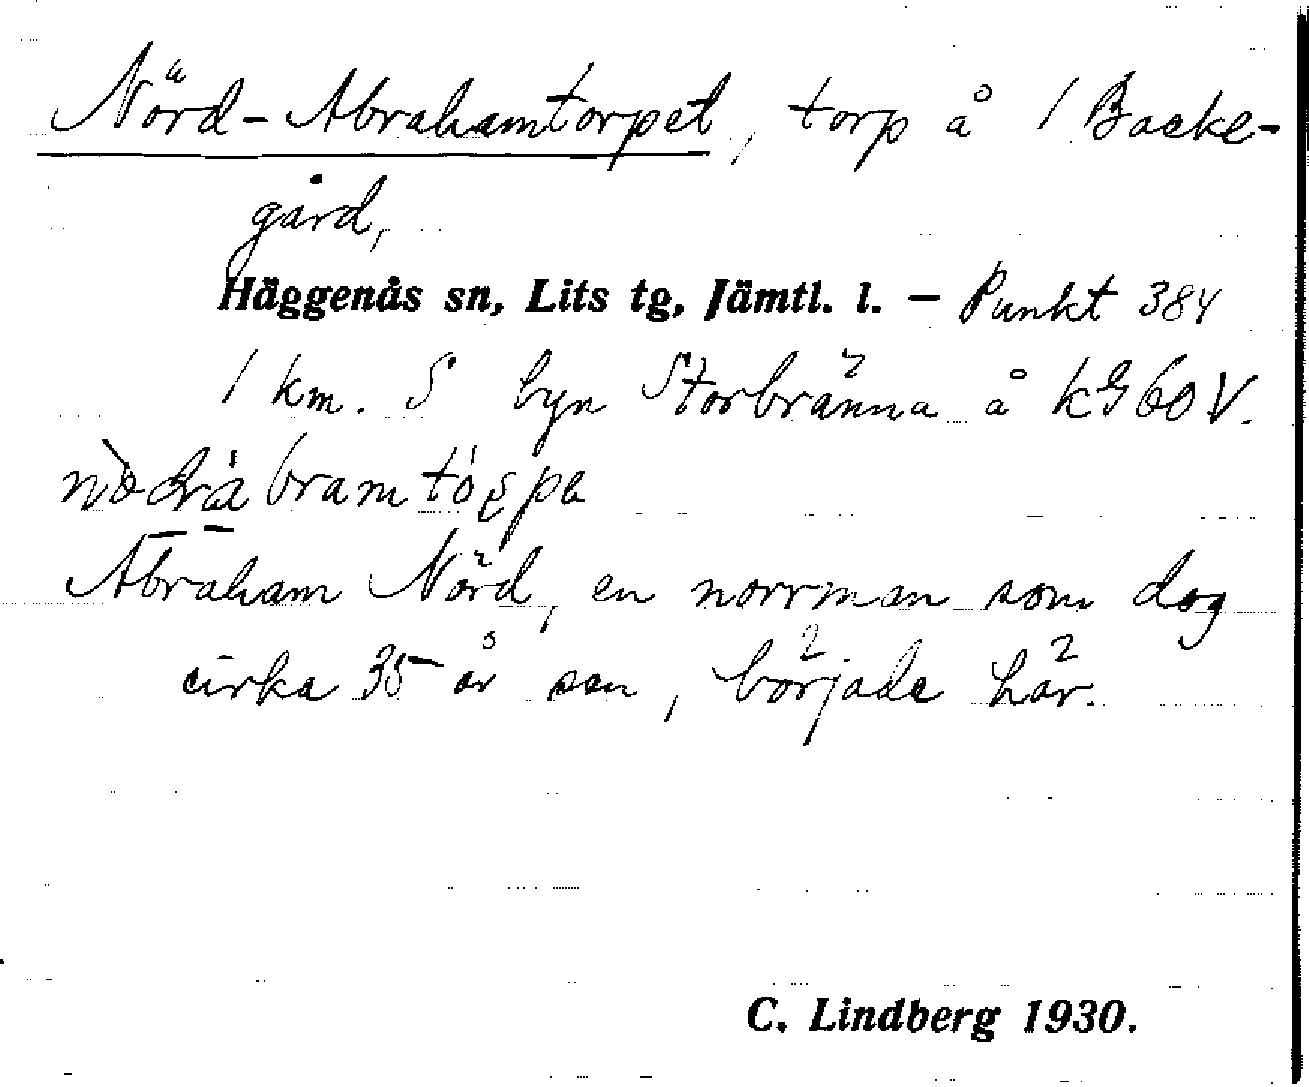 Nörd-Abrahamtorpet, torp å 1 Backe-
gård,
Häggenås sn, Lits tg, Jämtl. l. — Punkt 384
1 km. S byn Storbränna å kg 60 V.
Abraham Nörd, en norrman som dog
cirka 35 år sen, började här.
C. Lindberg 1930.